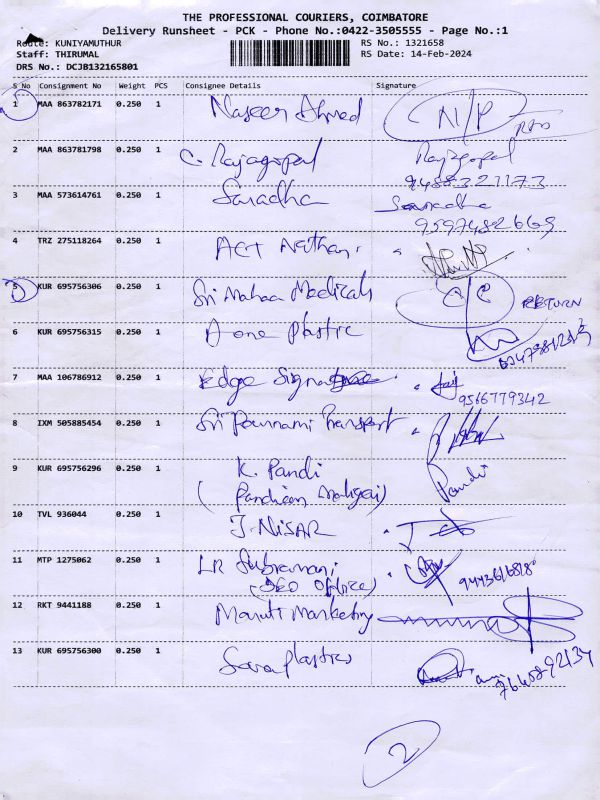 THE PROFESSIONAL COURIERS, COIMBATORE
Delivery Runsheet - PCK - Phone No.:0422-3505555 - Page No.:1
Route: KUNIYAMUTHUR
RS No.: 1321658
Staff: THIRUMAL
RS Date: 14-Feb-2024
DRS No.: DCJB132165801
S No Consignment No Weight PCS Consignee Details Signature
1 MAA 863782171 0.250 1 Naseer Ahmed N/P
2 MAA 863781798 0.250 1 C. Rajagopal Rajagopal
9488321173
3 MAA 573614761 0.250 1 Saradha Saradha
9597482669
4 TRZ 275118264 0.250 1 ACT Nathan
5 KUR 695756306 0.250 1 Sri Mahaa Medicals C/C RETURN
6 KUR 695756315 0.250 1 A one plastic
7 MAA 106786912 0.250 1 Edge Signature
9566779342
8 IXM 505885454 0.250 1 Sri Pournami Transport
9 KUR 695756296 0.250 1 K. Pandi Pandi
(Pandian Maligai)
10 TVL 936044 0.250 1 J. NISAR
11 MTP 1275062 0.250 1 LR Subramani
(SEO Office)
12 RKT 9441188 0.250 1 Maruti Marketing
13 KUR 695756300 0.250 1 Sara plastics
2